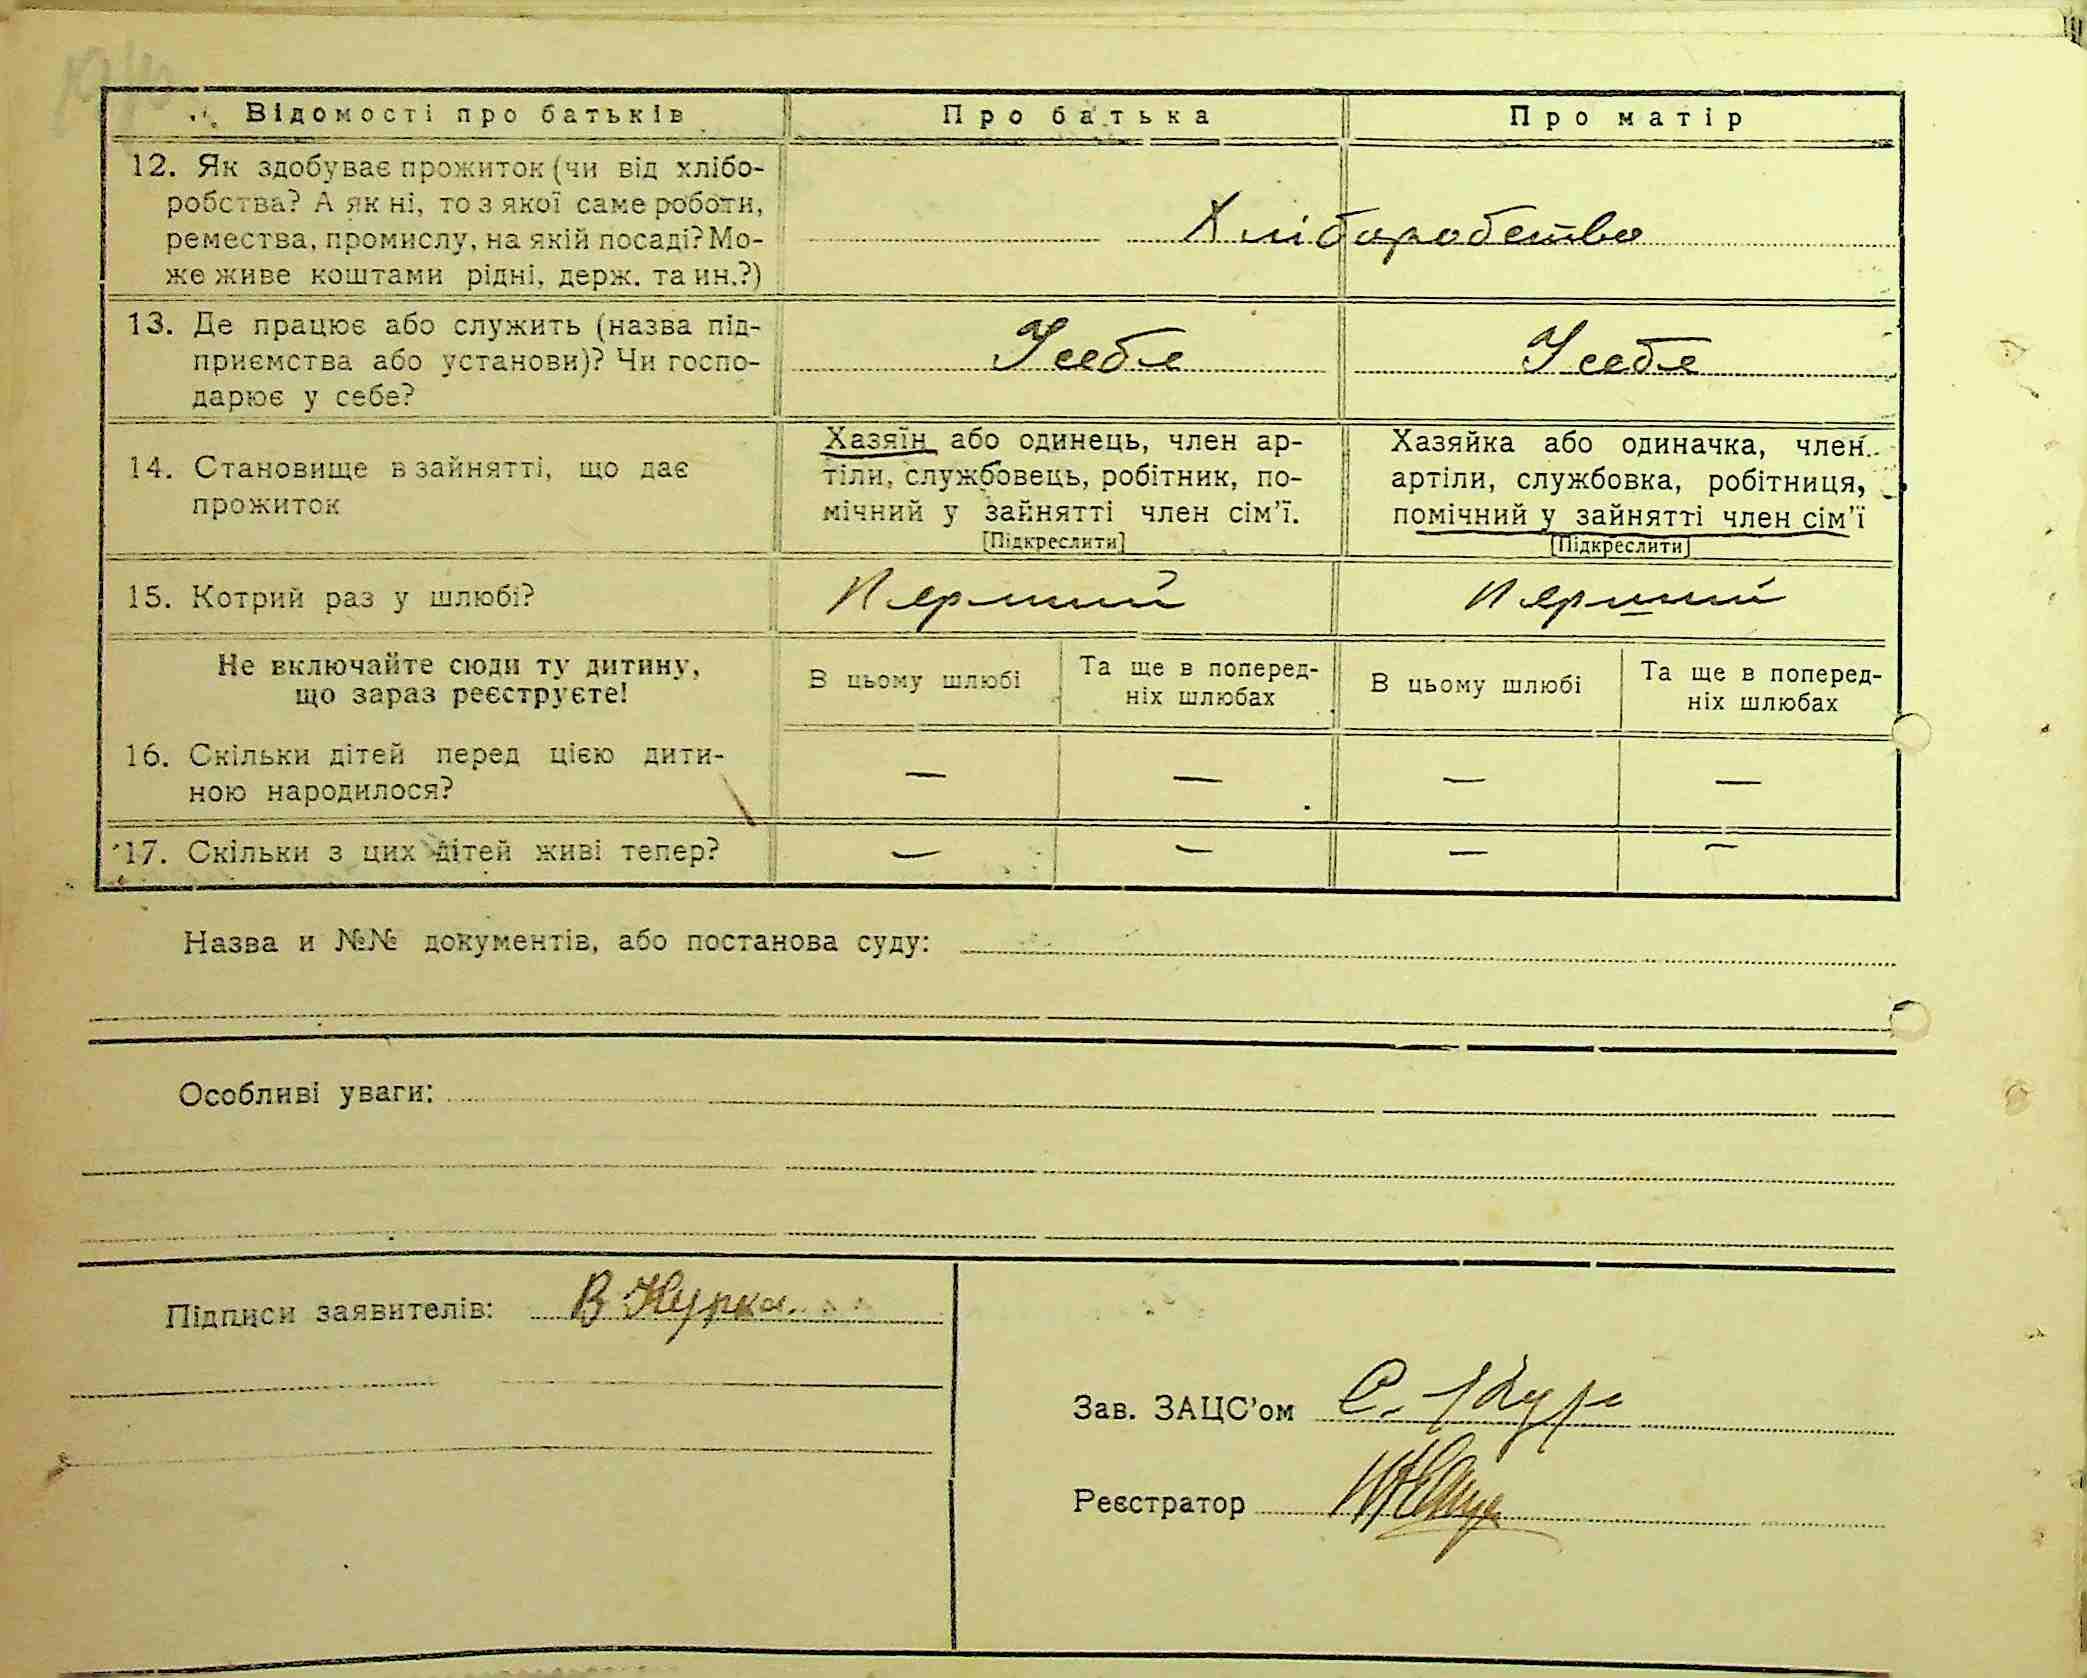 Відомості про батьків Про батька Про матір
12. Як здобуває прожиток (чи від хлібо-
робства? А як ні, то з якої саме роботи,
ремества, промислу, на якій посаді? Мо-
же живе коштами рідні, держ. та ин.?)
Хліборобство
13. Де працює або служить (назва під-
приємства або установи)? Чи госпо-
дарює у себе?
У себе У себе
14. Становище в зайнятті, що дає
прожиток
Хазяїн або одинець, член ар-
тіли, службовець, робітник, по-
мічний у зайнятті член сім'ї.
[Підкреслити]
Хазяйка або одиначка, член
артіли, службовка, робітниця,
помічний у зайнятті член сім'ї
[Підкреслити]
15. Котрий раз у шлюбі? Перший Перший
Не включайте сюди ту дитину,
що зараз реєструєте!
В цьому шлюбі
Та ще в поперед-
ніх шлюбах
В цьому шлюбі
Та ще в поперед-
ніх шлюбах
16. Скільки дітей перед цією дити-
ною народилося?
— — — —
17. Скільки з цих дітей живі тепер? — — — —
Назва и №№ документів, або постанова суду:
Особливі уваги:
Підписи заявителів:
Зав. ЗАЦС'ом
Реєстратор